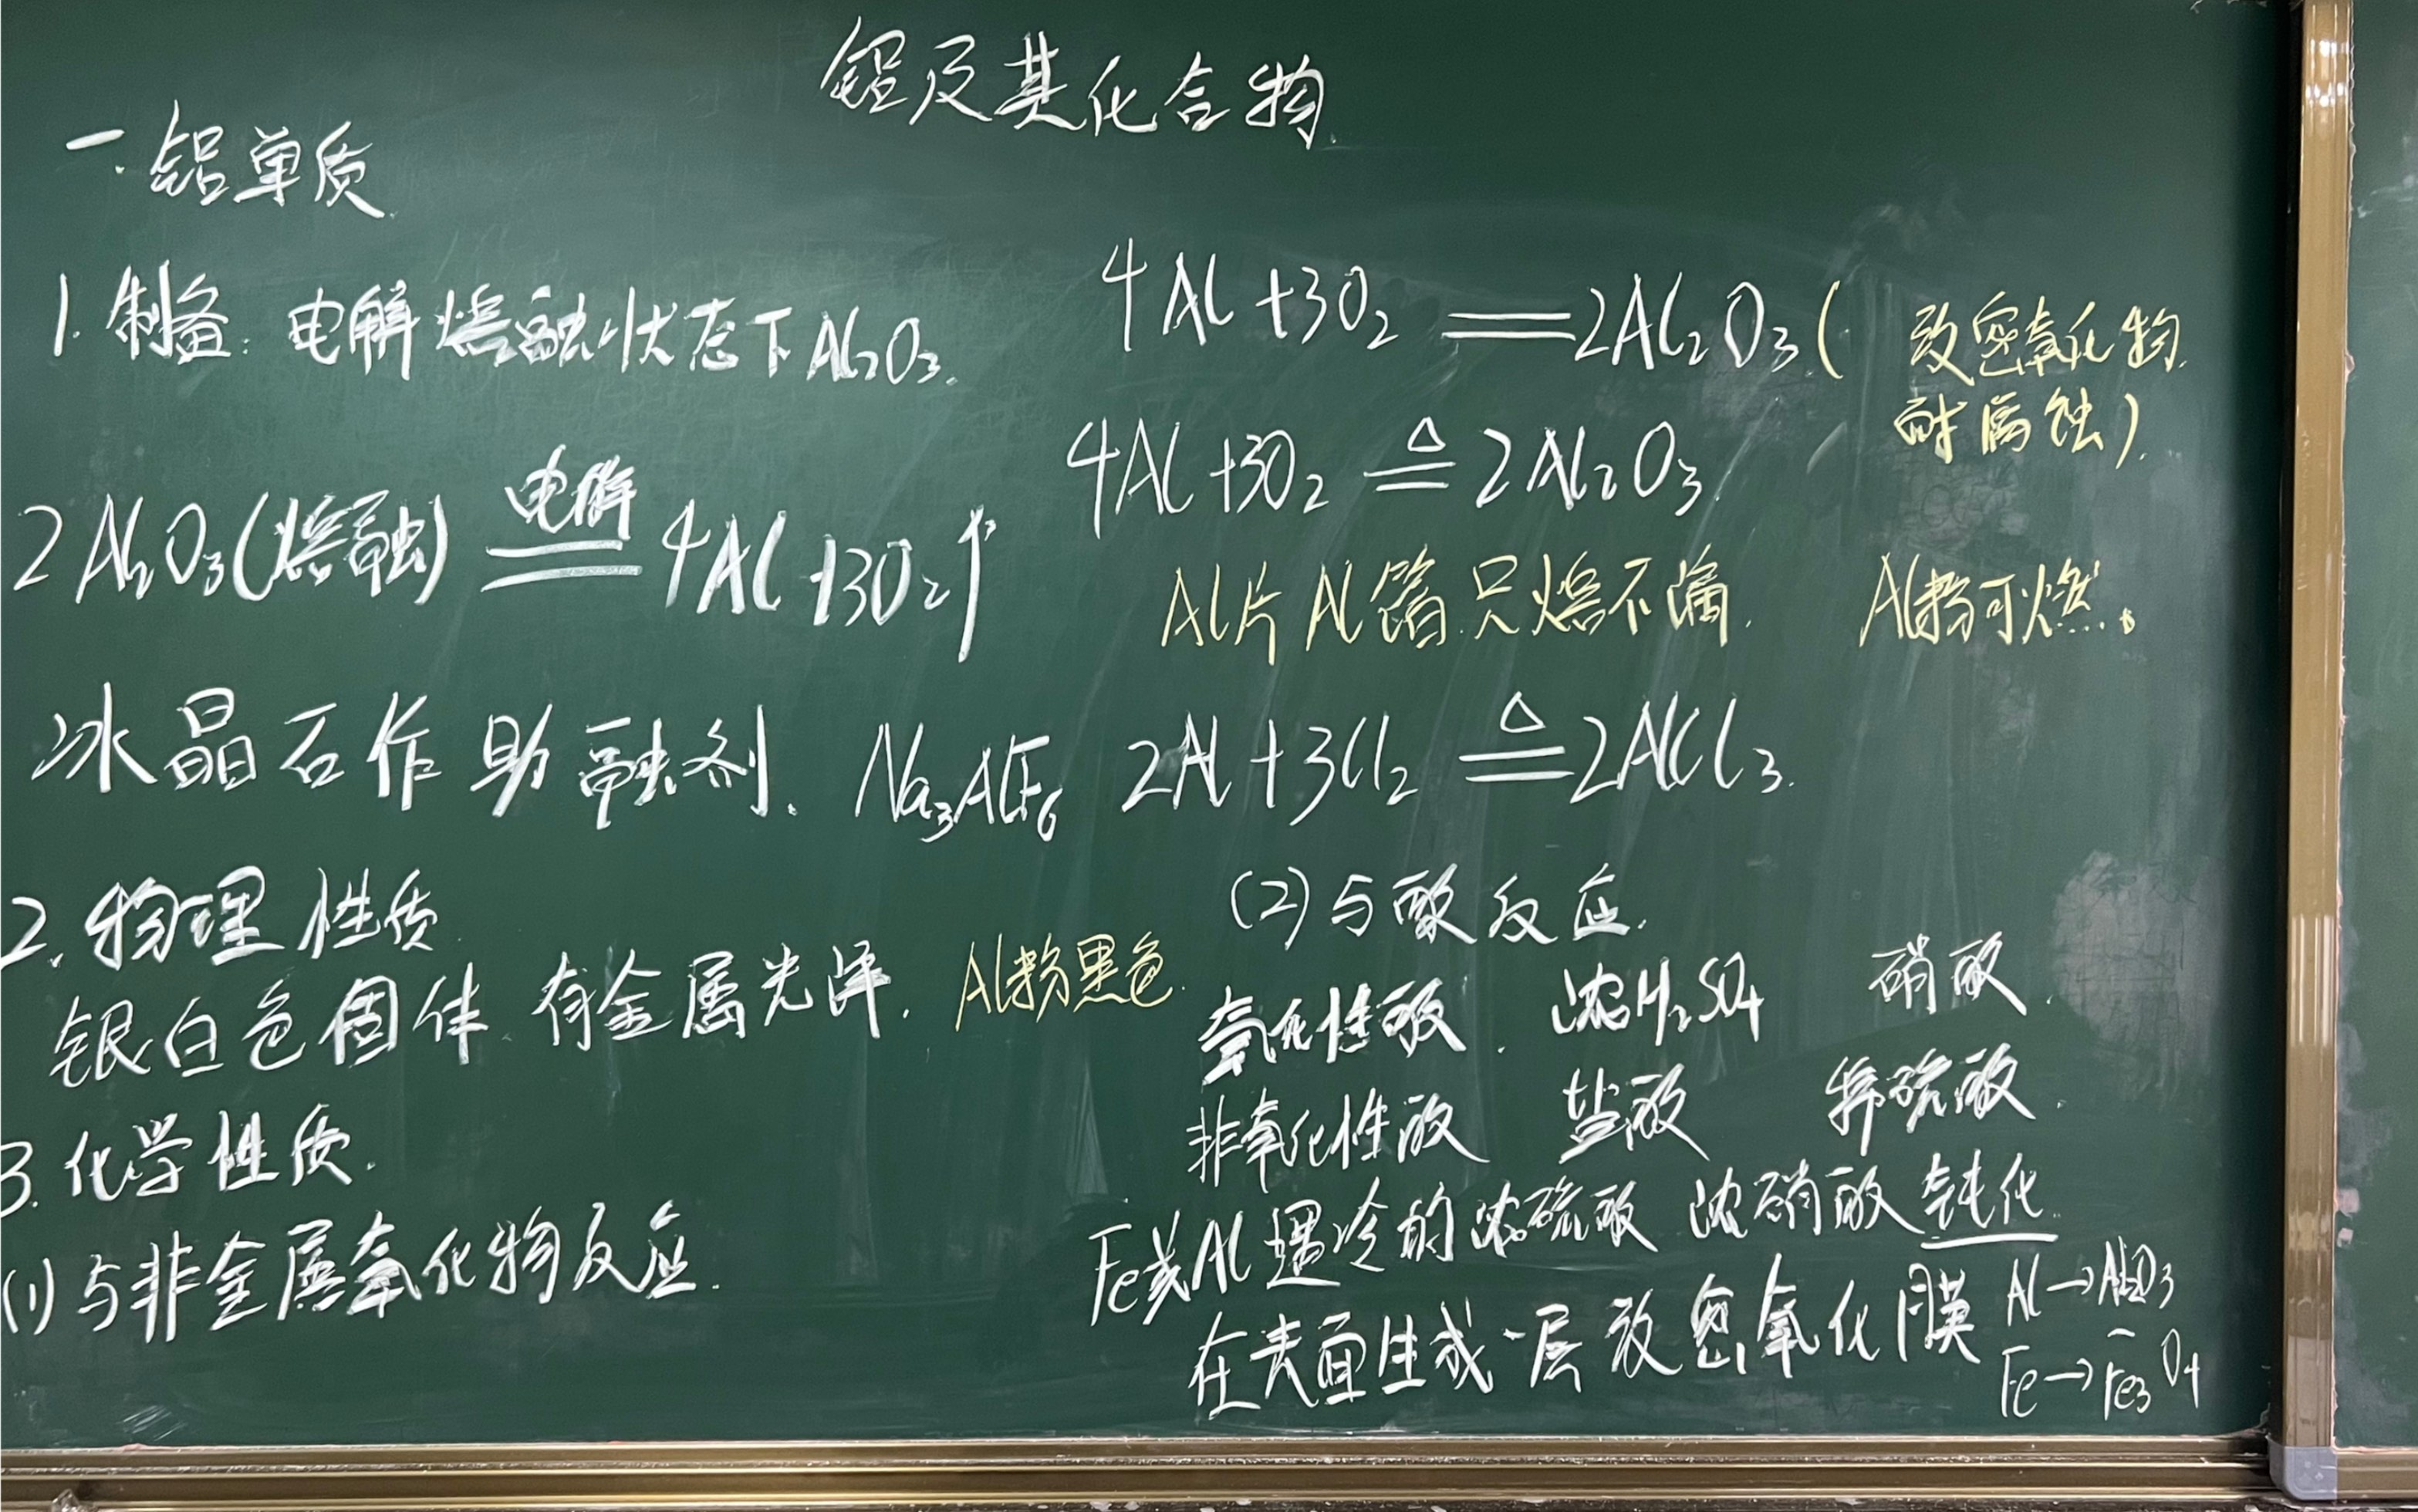 铝及其化合物
一.铝单质
1.制备:电解熔融状态下Al₂O₃.
2Al₂O₃(熔融) 电解 ══ 4Al+3O₂↑
冰晶石作助融剂. Na₃AlF₆
2.物理性质
银白色固体 有金属光泽. Al粉黑色.
3.化学性质.
(1)与非金属氧化物反应.
4Al+3O₂ ══ 2Al₂O₃(致密氧化物.
耐腐蚀).
4Al+3O₂ ≜ 2Al₂O₃
Al片 Al箔.只熔不滴. Al粉可燃.
2Al+3Cl₂ ≜ 2AlCl₃.
(2)与酸反应.
氧化性酸. 浓H₂SO₄ 硝酸.
非氧化性酸 盐酸 稀硫酸.
Fe或Al遇冷的浓硫酸 浓硝酸钝化.
在表面生成一层致密氧化膜 Al→Al₂O₃
Fe→Fe₃O₄